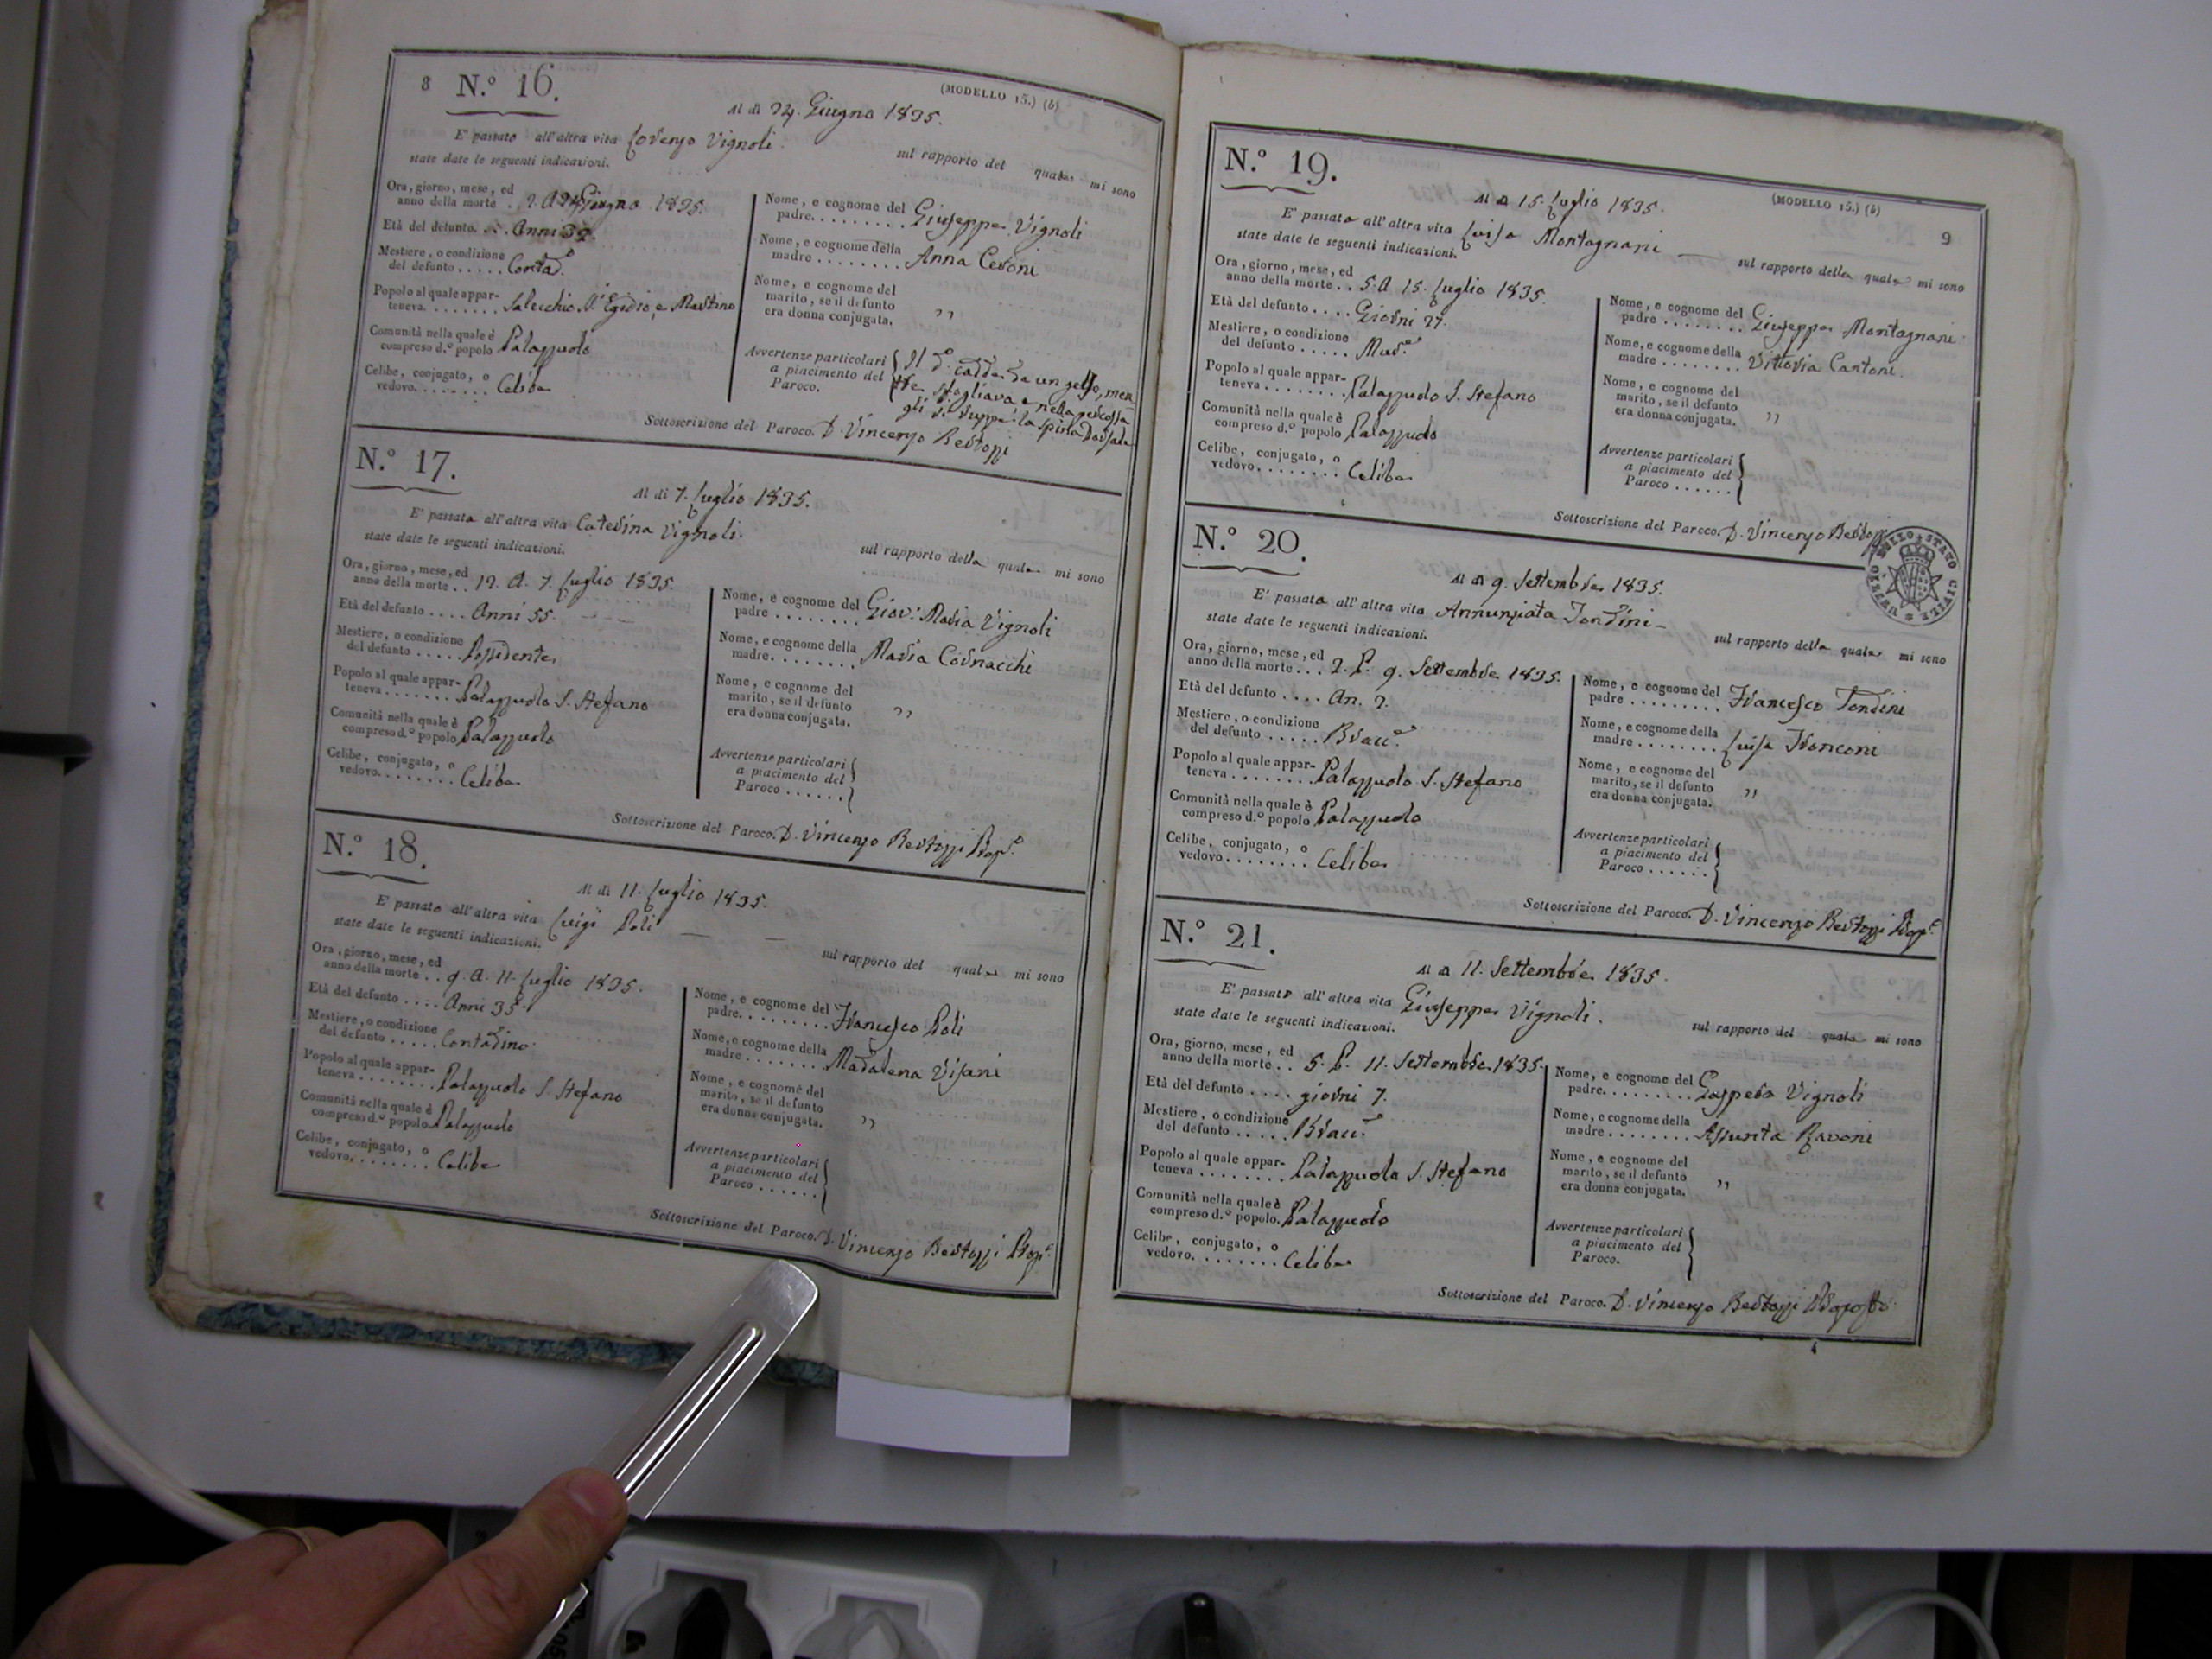 8 N.º 16.
(MODELLO 15.) (b)
Al dì 24. Giugno 1835.
E' passato all'altra vita Lorenzo Vignoli.
sul rapporto del quale mi sono
state date le seguenti indicazioni.
Ora, giorno, mese, ed
anno della morte . 2. A 24 Giugno 1835.
Età del defunto. . . Anni 32.
Mestiere, o condizione
del defunto ..... Contad.º
Popolo al quale appar-
teneva. ....... Salecchio S. Egidio, e Martino
Comunità nella quale è
compreso d.º popolo Palazzuolo
Celibe, conjugato, o
vedovo. ....... Celibe
Nome, e cognome del
padre. ....... Giuseppe Vignoli
Nome, e cognome della
madre ........ Anna Ceroni
Nome, e cognome del
marito, se il defunto
era donna conjugata. ,,
Avvertenze particolari
a piacimento del
Paroco.
Il d.º cadde da un gelso, men
tre sfogliava e nella percossa
gli si ruppe la spina dorsale
Sottoscrizione del Paroco. D. Vincenzo Bertozzi
N.º 17.
Al dì 7. Luglio 1835.
E' passata all'altra vita Caterina Vignoli.
sul rapporto della quale mi sono
state date le seguenti indicazioni.
Ora, giorno, mese, ed
anno della morte . . 12. A. 7. Luglio 1835.
Età del defunto .... Anni 55.
Mestiere, o condizione
del defunto ..... Possidente
Popolo al quale appar-
teneva ........ Palazzuolo S. Stefano
Comunità nella quale è
compreso d.º popolo Palazzuolo
Celibe, conjugato, o
vedovo. ....... Celibe
Nome, e cognome del
padre ........ Giov: Maria Vignoli
Nome, e cognome della
madre. ....... Maria Cornacchi
Nome, e cognome del
marito, se il defunto
era donna conjugata. ,,
Avvertenze particolari
a piacimento del
Paroco ......
Sottoscrizione del Paroco. D. Vincenzo Bertozzi Prop.º
N.º 18.
Al dì 11. Luglio 1835.
E' passato all'altra vita Luigi Poli
sul rapporto del quale mi sono
state date le seguenti indicazioni.
Ora, giorno, mese, ed
anno della morte . . 9. A. 11. Luglio 1835.
Età del defunto .... Anni 35.
Mestiere, o condizione
del defunto ..... Contadino
Popolo al quale appar-
teneva ........ Palazzuolo S. Stefano
Comunità nella quale è
compreso d.º popolo Palazzuolo
Celibe, conjugato, o
vedovo. ....... Celibe
Nome, e cognome del
padre. ........ Francesco Poli
Nome, e cognome della
madre ....... Madalena Visani
Nome, e cognome del
marito, se il defunto
era donna conjugata. ,,
Avvertenze particolari
a piacimento del
Paroco ......
Sottoscrizione del Paroco. D. Vincenzo Bertozzi Prop.º
N.º 19.
(MODELLO 15.) (b)
9
Al dì 15. Luglio 1835.
E' passata all'altra vita Luisa Montagnani
sul rapporto della quale mi sono
state date le seguenti indicazioni.
Ora, giorno, mese, ed
anno della morte . . 5. A 15. Luglio 1835.
Età del defunto .... Giorni 27.
Mestiere, o condizione
del defunto .....
Popolo al quale appar-
teneva ........ Palazzuolo S. Stefano
Comunità nella quale è
compreso d.º popolo Palazzuolo
Celibe, conjugato, o
vedovo. ....... Celibe
Nome, e cognome del
padre ........ Giuseppe Montagnani
Nome, e cognome della
madre ........ Vittoria Cantoni.
Nome, e cognome del
marito, se il defunto
era donna conjugata. ,,
Avvertenze particolari
a piacimento del
Paroco ......
Sottoscrizione del Paroco. D. Vincenzo Bertozzi
STATO CIVILE
N.º 20.
Al dì 9. Settembre 1835.
E' passata all'altra vita Annunziata Tondini
sul rapporto della quale mi sono
state date le seguenti indicazioni.
Ora, giorno, mese, ed
anno della morte ... 2. P. 9. Settembre 1835.
Età del defunto .... An. 2.
Mestiere, o condizione
del defunto ..... Bracc.º
Popolo al quale appar-
teneva ........ Palazzuolo S. Stefano
Comunità nella quale è
compreso d.º popolo Palazzuolo
Celibe, conjugato, o
vedovo ........ Celibe
Nome, e cognome del
padre ......... Francesco Tondini
Nome, e cognome della
madre ........ Luisa Franconi
Nome, e cognome del
marito, se il defunto
era donna conjugata. ,,
Avvertenze particolari
a piacimento del
Paroco ......
Sottoscrizione del Paroco. D. Vincenzo Bertozzi Prop.º
N.º 21.
Al dì 11. Settembre 1835.
E' passato all'altra vita Giuseppe Vignoli.
sul rapporto del quale mi sono
state date le seguenti indicazioni.
Ora, giorno, mese, ed
anno della morte . . 5. P. 11. Settembre 1835.
Età del defunto .... giorni 7.
Mestiere, o condizione
del defunto ..... Bracc.º
Popolo al quale appar-
teneva ........ Palazzuolo S. Stefano
Comunità nella quale è
compreso d.º popolo. Palazzuolo
Celibe, conjugato, o
vedovo. ....... Celibe
Nome, e cognome del
padre. ........ Gaspero Vignoli
Nome, e cognome della
madre ........ Assunta Ravoni
Nome, e cognome del
marito, se il defunto
era donna conjugata. ,,
Avvertenze particolari
a piacimento del
Paroco.
Sottoscrizione del Paroco. D. Vincenzo Bertozzi Proposto